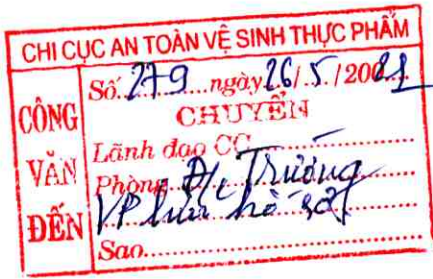 CHI CỤC AN TOÀN VỆ SINH THỰC PHẨM
CÔNG VĂN ĐẾN
Số 279 ngày 26/5/2021
CHUYỂN
Lãnh đạo CC
Phòng Đ/c Trường
VP lưu hồ sơ
Sao